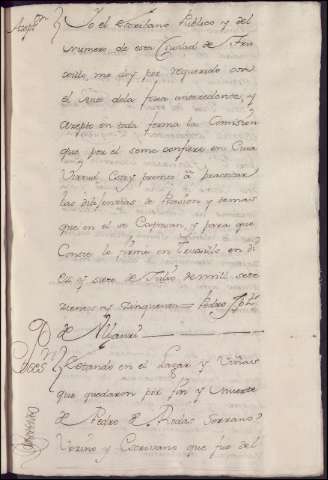 Yo el Escribano Publico y del
numero, de esta Ciudad de Tru
xillo, me doy por requerido con
el Auto dela foxa antecedente, y
azepto en toda forma la Comission
que por el seme confiere en Cuia
Virtud Estoy prompto a practicar
las Dilixencias de Tasazion y demas
que en el se Expresan y para que
Conste lo firmé en Truxillo en
siete de Julio de mill sete
zientos y zinquenta = Pedro
de
Estando en el Lagar y Viñas
que quedaron por fin y muerte
de Pedro de Rodas Serrano
Vezino y Escrivano que fue del